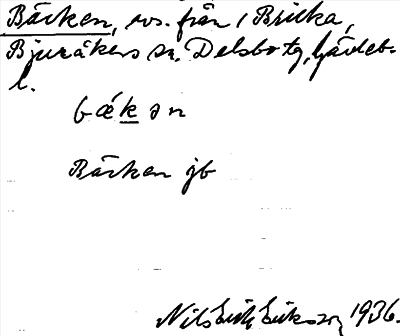 Bäcken, vs. från 1 Bricka,
Bjuråkers sn, Delsbo tg, Gävleb.
l.
bækən
Bäcken jb
Nils Erik Eriksson 1936.